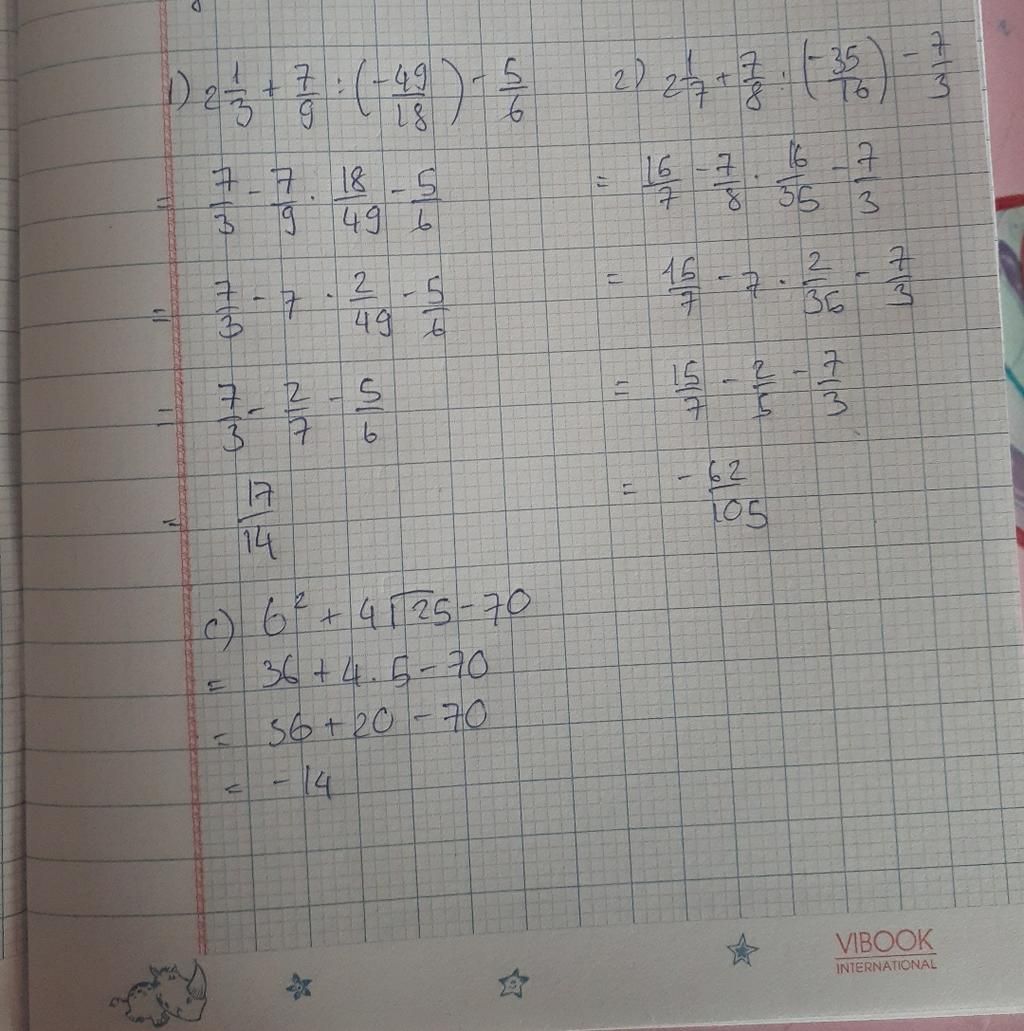 1) 2 1/3 + 7/9 : (-49/18) - 5/6
= 7/3 - 7/9 . 18/49 - 5/6
= 7/3 - 7 . 2/49 - 5/6
= 7/3 - 2/7 - 5/6
= 17/14
2) 2 1/7 + 7/8 : (-35/16) - 7/3
= 15/7 - 7/8 . 16/35 - 7/3
= 15/7 - 7 . 2/35 - 7/3
= 15/7 - 2/5 - 7/3
= -62/105
c) 6² + 4√25 - 70
= 36 + 4 . 5 - 70
= 36 + 20 - 70
= -14
VIBOOK
INTERNATIONAL